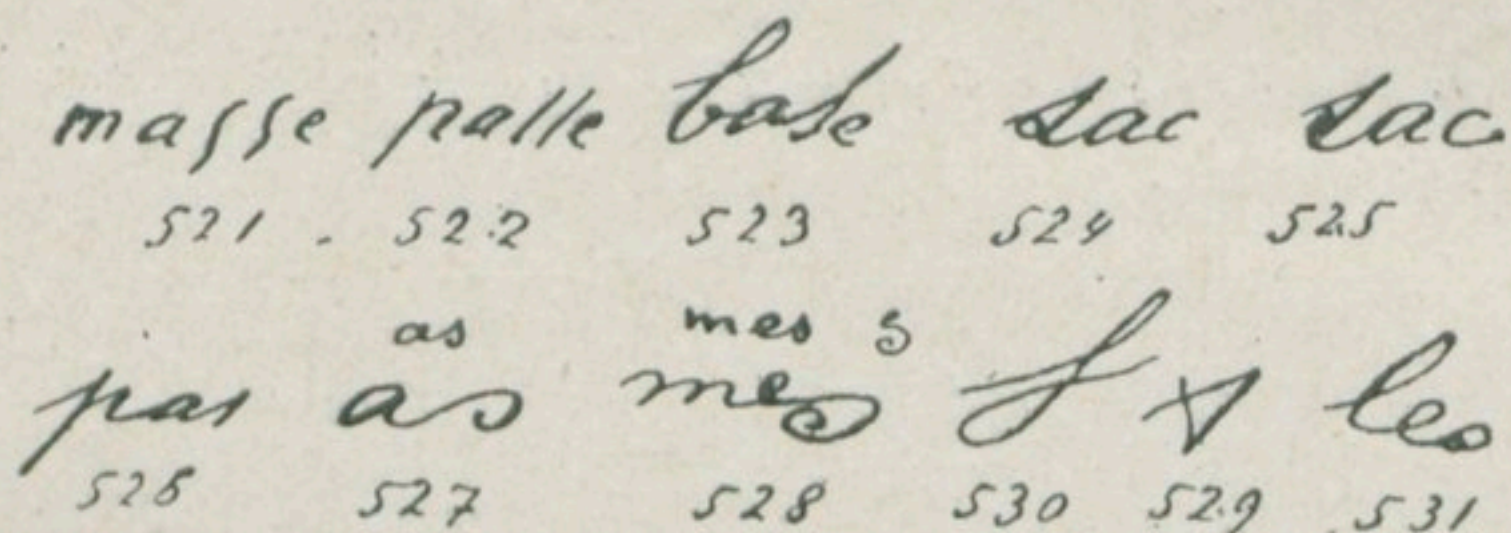 masse passe base sac sac
521 . 522 523 524 525
as mes s
pas as mes s s les
526 527 528 530 529 531